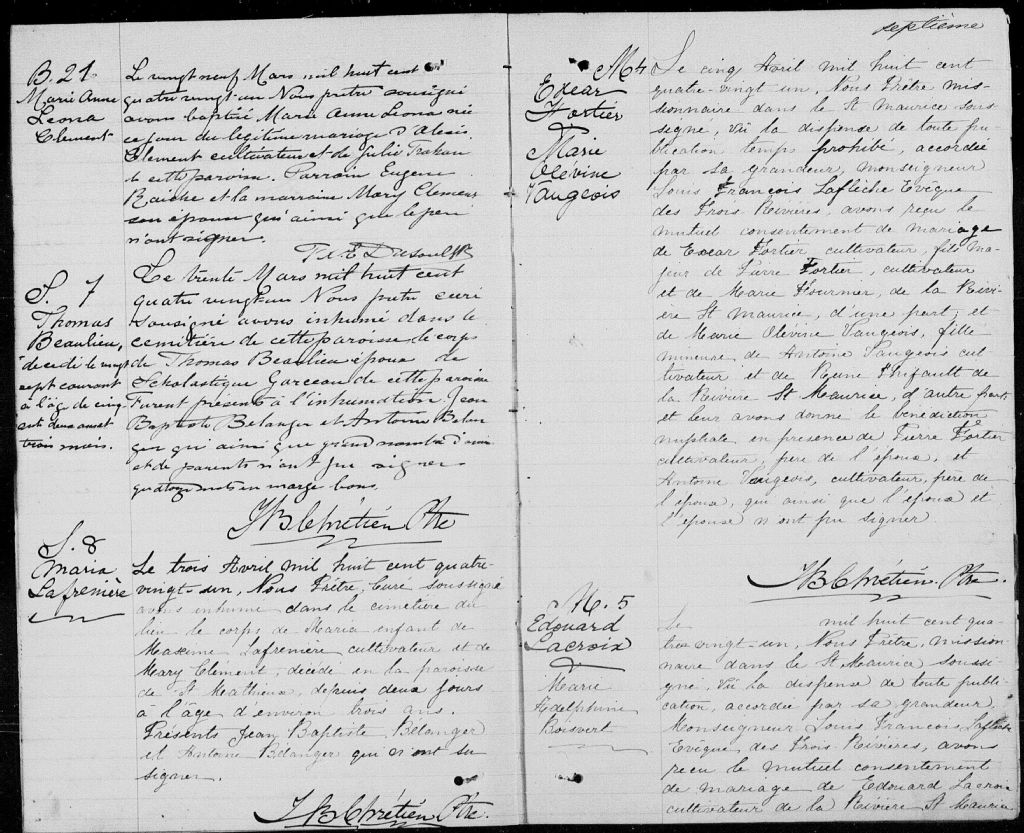 B. 21
Marie Anne
Leona
Clement
Le vingt neuf Mars mil huit cent
quatre vingt-un Nous prêtre sousigné
avons baptisé Marie Anne Leona née
ce jour du légitime mariage d'Alexis
Clement cultivateur et de Julie
de cette paroisse. Parrain Eugene
et la marraine Mary Clement
son épouse qui ainsi que le père
n'ont signer.
S. 7
Thomas
Beaulieu,
décédé le vingt
sept courant
à l'âge de cinq
ante deux ans et
trois mois.
Le trente Mars mil huit cent
quatre vingt un Nous prêtre curé
sousigné avons inhumé dans le
cemitière de cette paroisse le corps
de Thomas Beaulieu époux de
Scholastique Garceau de cette paroisse
Furent présents à l'inhumation Jean
Baptiste Belanger et Antoine Belan
ger qui ainsi que grand nombre d'amis
et de parents n'ont pu signer
quatorze mots en marge bons.
JB Chrétien Ptre
S. 8
Maria
Lafrenière
Le trois Avril mil huit cent quatre-
vingt-un, Nous Prêtre, Curé soussigné
avons inhumé dans le cimetière du
lieu le corps de Maria enfant de
Maxime Lafrenière cultivateur et de
Mary Clément, décédé en la paroisse
de St Mathieu, depuis deux jours
à l'âge d'environ trois ans.
Présents Jean Baptiste Bélanger
et Antoine Bélanger qui n'ont su
signer.
JB Chrétien Ptre.
septième
M 4
Excar
Fortier
&
Marie
Olévine
Vaugeois
Le cinq Avril mil huit cent
quatre-vingt un, Nous Prêtre mis-
sionnaire dans le St Maurice sous-
signé, Vû la dispense de toute pu-
blication temps prohibé, accordée
par sa grandeur, Monseigneur
Louis François Laflèche Evêque
des Trois Rivières, avons reçu le
mutuel consentement de mariage
de Excar Fortier cultivateur, fils ma-
jeur de Pierre Fortier, cultivateur
et de Marie Fournier, de la Riviè
ère St Maurice, d'une part, et
de Marie Olévine Vaugeois, fille
mineure de Antoine Vaugeois cul
tivateur et de Reine Thifault de
la Rivière St Maurice, d'autre part
et leur avons donné la bénédiction
nuptiale en presence de Pierre Fortier
cultivateur, père de l'époux, et
Antoine Vaugeois, cultivateur, père de
l'épouse, qui ainsi que l'époux et
l'épouse n'ont pu signer.
JB Chrétien Ptre.
M. 5
Edouard
Lacroix
&
Marie
Adelphine
Boisvert
Le mil huit cent qua-
tre vingt-un, Nous Prêtre, mission-
naire dans le St Maurice soussi-
gné, Vû la dispense de toute publi-
cation, accordée par sa grandeur,
Monseigneur Louis François Laflèche
Evêque des Trois-Rivières, avons
reçu le mutuel consentement
de mariage de Edouard Lacroix
cultivateur de la Rivière St Maurice